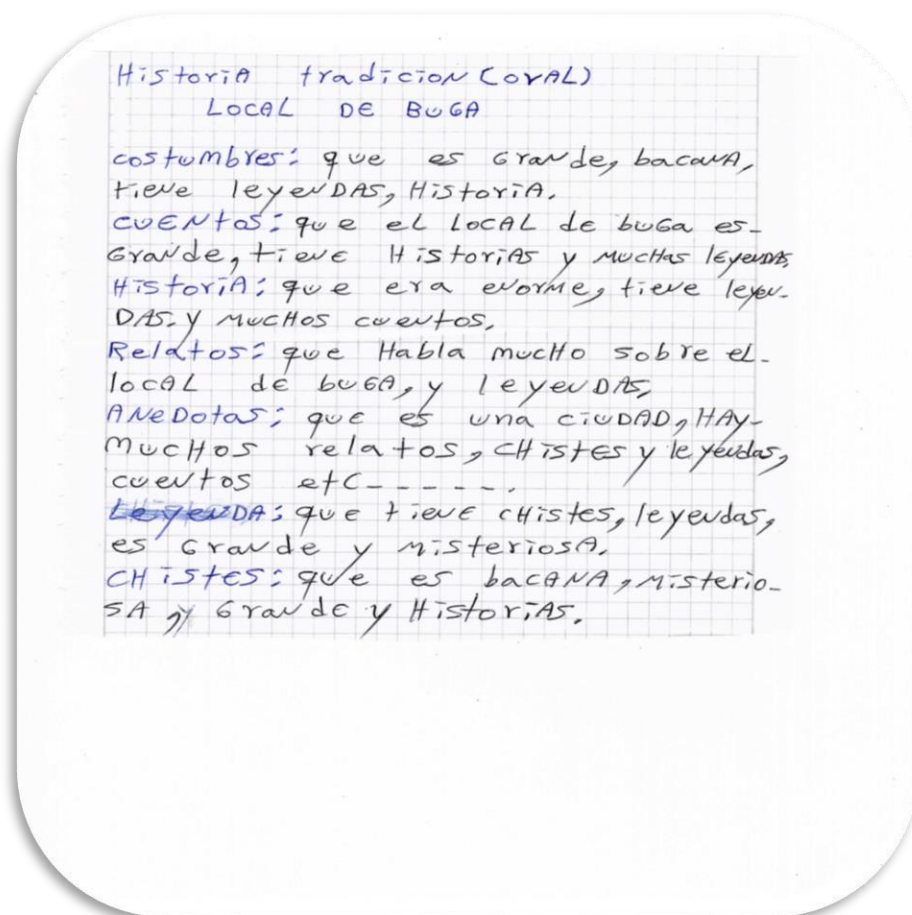 Historia tradicion (oral)
LOCAL DE BUGA
costumbres: que es Grande, bacana,
tiene leyenDAS, Historia.
CUENtos: que el LOCAL de buGa es-
Grande, tiene Historias y Muchas leyendas
Historia: que era enorme, tiene leyen-
DAS. y MucHos cuentos.
Relatos: que Habla mucHo sobre el-
local de buGA, y leyenDAS,
ANeDotas: que es una ciuDAD, HAy-
mucHos relatos, CHistes y leyendas,
cuentos etc------.
LeyenDA: que tiene cHistes, leyendas,
es Grande y misteriosA.
CHistes: que es bacANA, Misterio-
SA, y Grande y Historias.